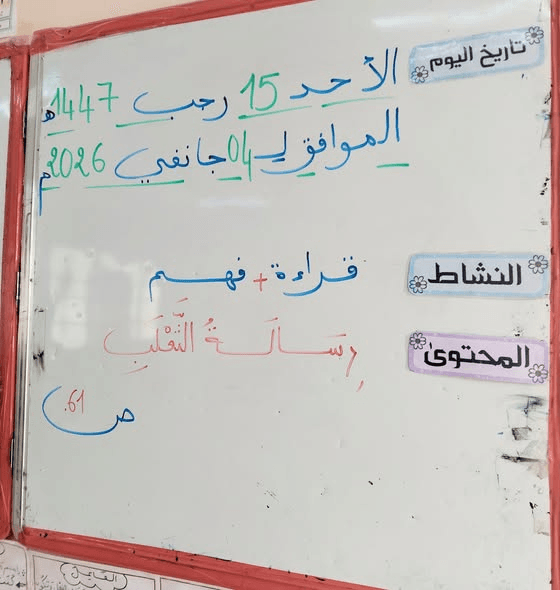 تاريخ اليوم
الأحد 15 رجب 1447ه
الموافق لـ 04 جانفي 2026م
النشاط
قراءة + فهم
المحتوى
رِسَالَةُ الثَّعْلَبِ
ص 61.